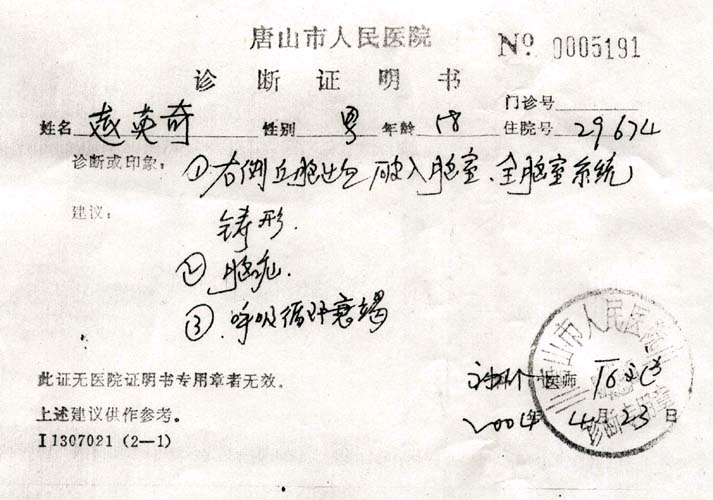 唐山市人民医院
№ 0005191
诊断证明书
门诊号
姓名 赵英奇 性别 男 年龄 18 住院号 29674
诊断或印象: ①右侧丘脑出血破入脑室、全脑室系统
建议: 铸形.
②脑疝.
③.呼吸循环衰竭
此证无医院证明书专用章者无效。
医师
上述建议供作参考。
2001年 4月 23日
I 1307021 (2—1)
唐山市人民医院
诊断专用章